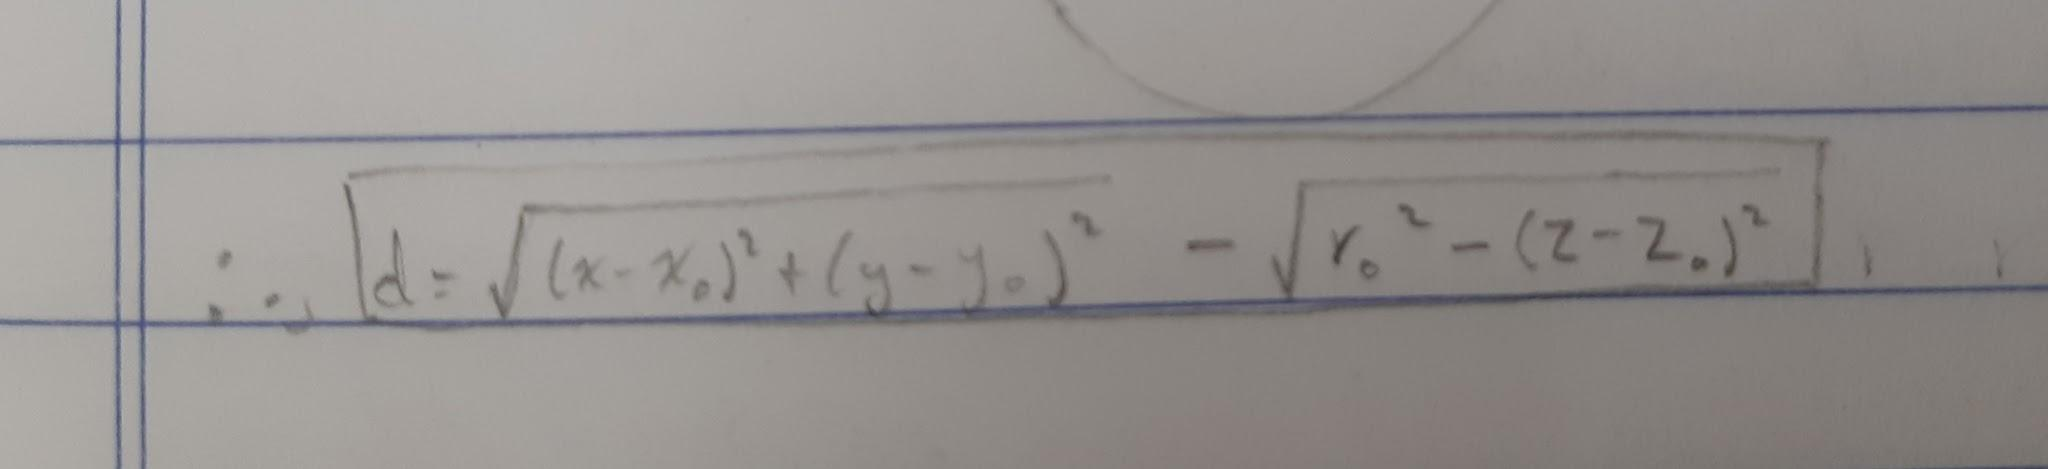 ∴, d = √((x - x₀)² + (y - y₀)²) - √(r₀² - (z - z₀)²)